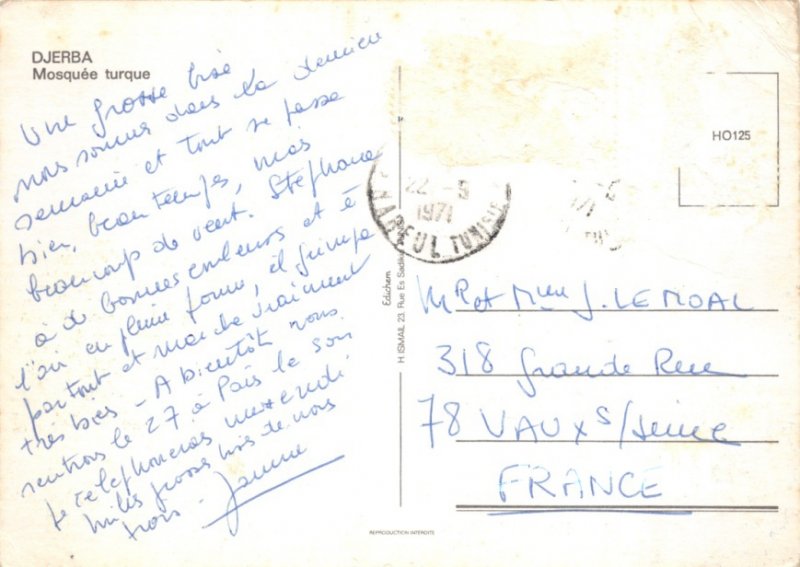 DJERBA
Mosquée turque
Une grosse bise
nous sommes dans la dernière
semaine et tout se passe
bien, beau temps, mais
beaucoup de vent. Stéphane
a de bonnes couleurs et à
l'air en pleine forme, il grimpe
partout et marche vraiment
très bien - A bientôt nous
rentrons le 27 à Paris le soir
je téléphonerai mercredi
milles grosses bises de nous
trois - 
22 - 9
1971
NABEUL TUNISIE
HO125
Edichem
H. ISMAIL 23, Rue Es Sadikia
Mr et Mme J. LEMOAL
318 Grande Rue
78 VAUX s/Seine
FRANCE
REPRODUCTION INTERDITE